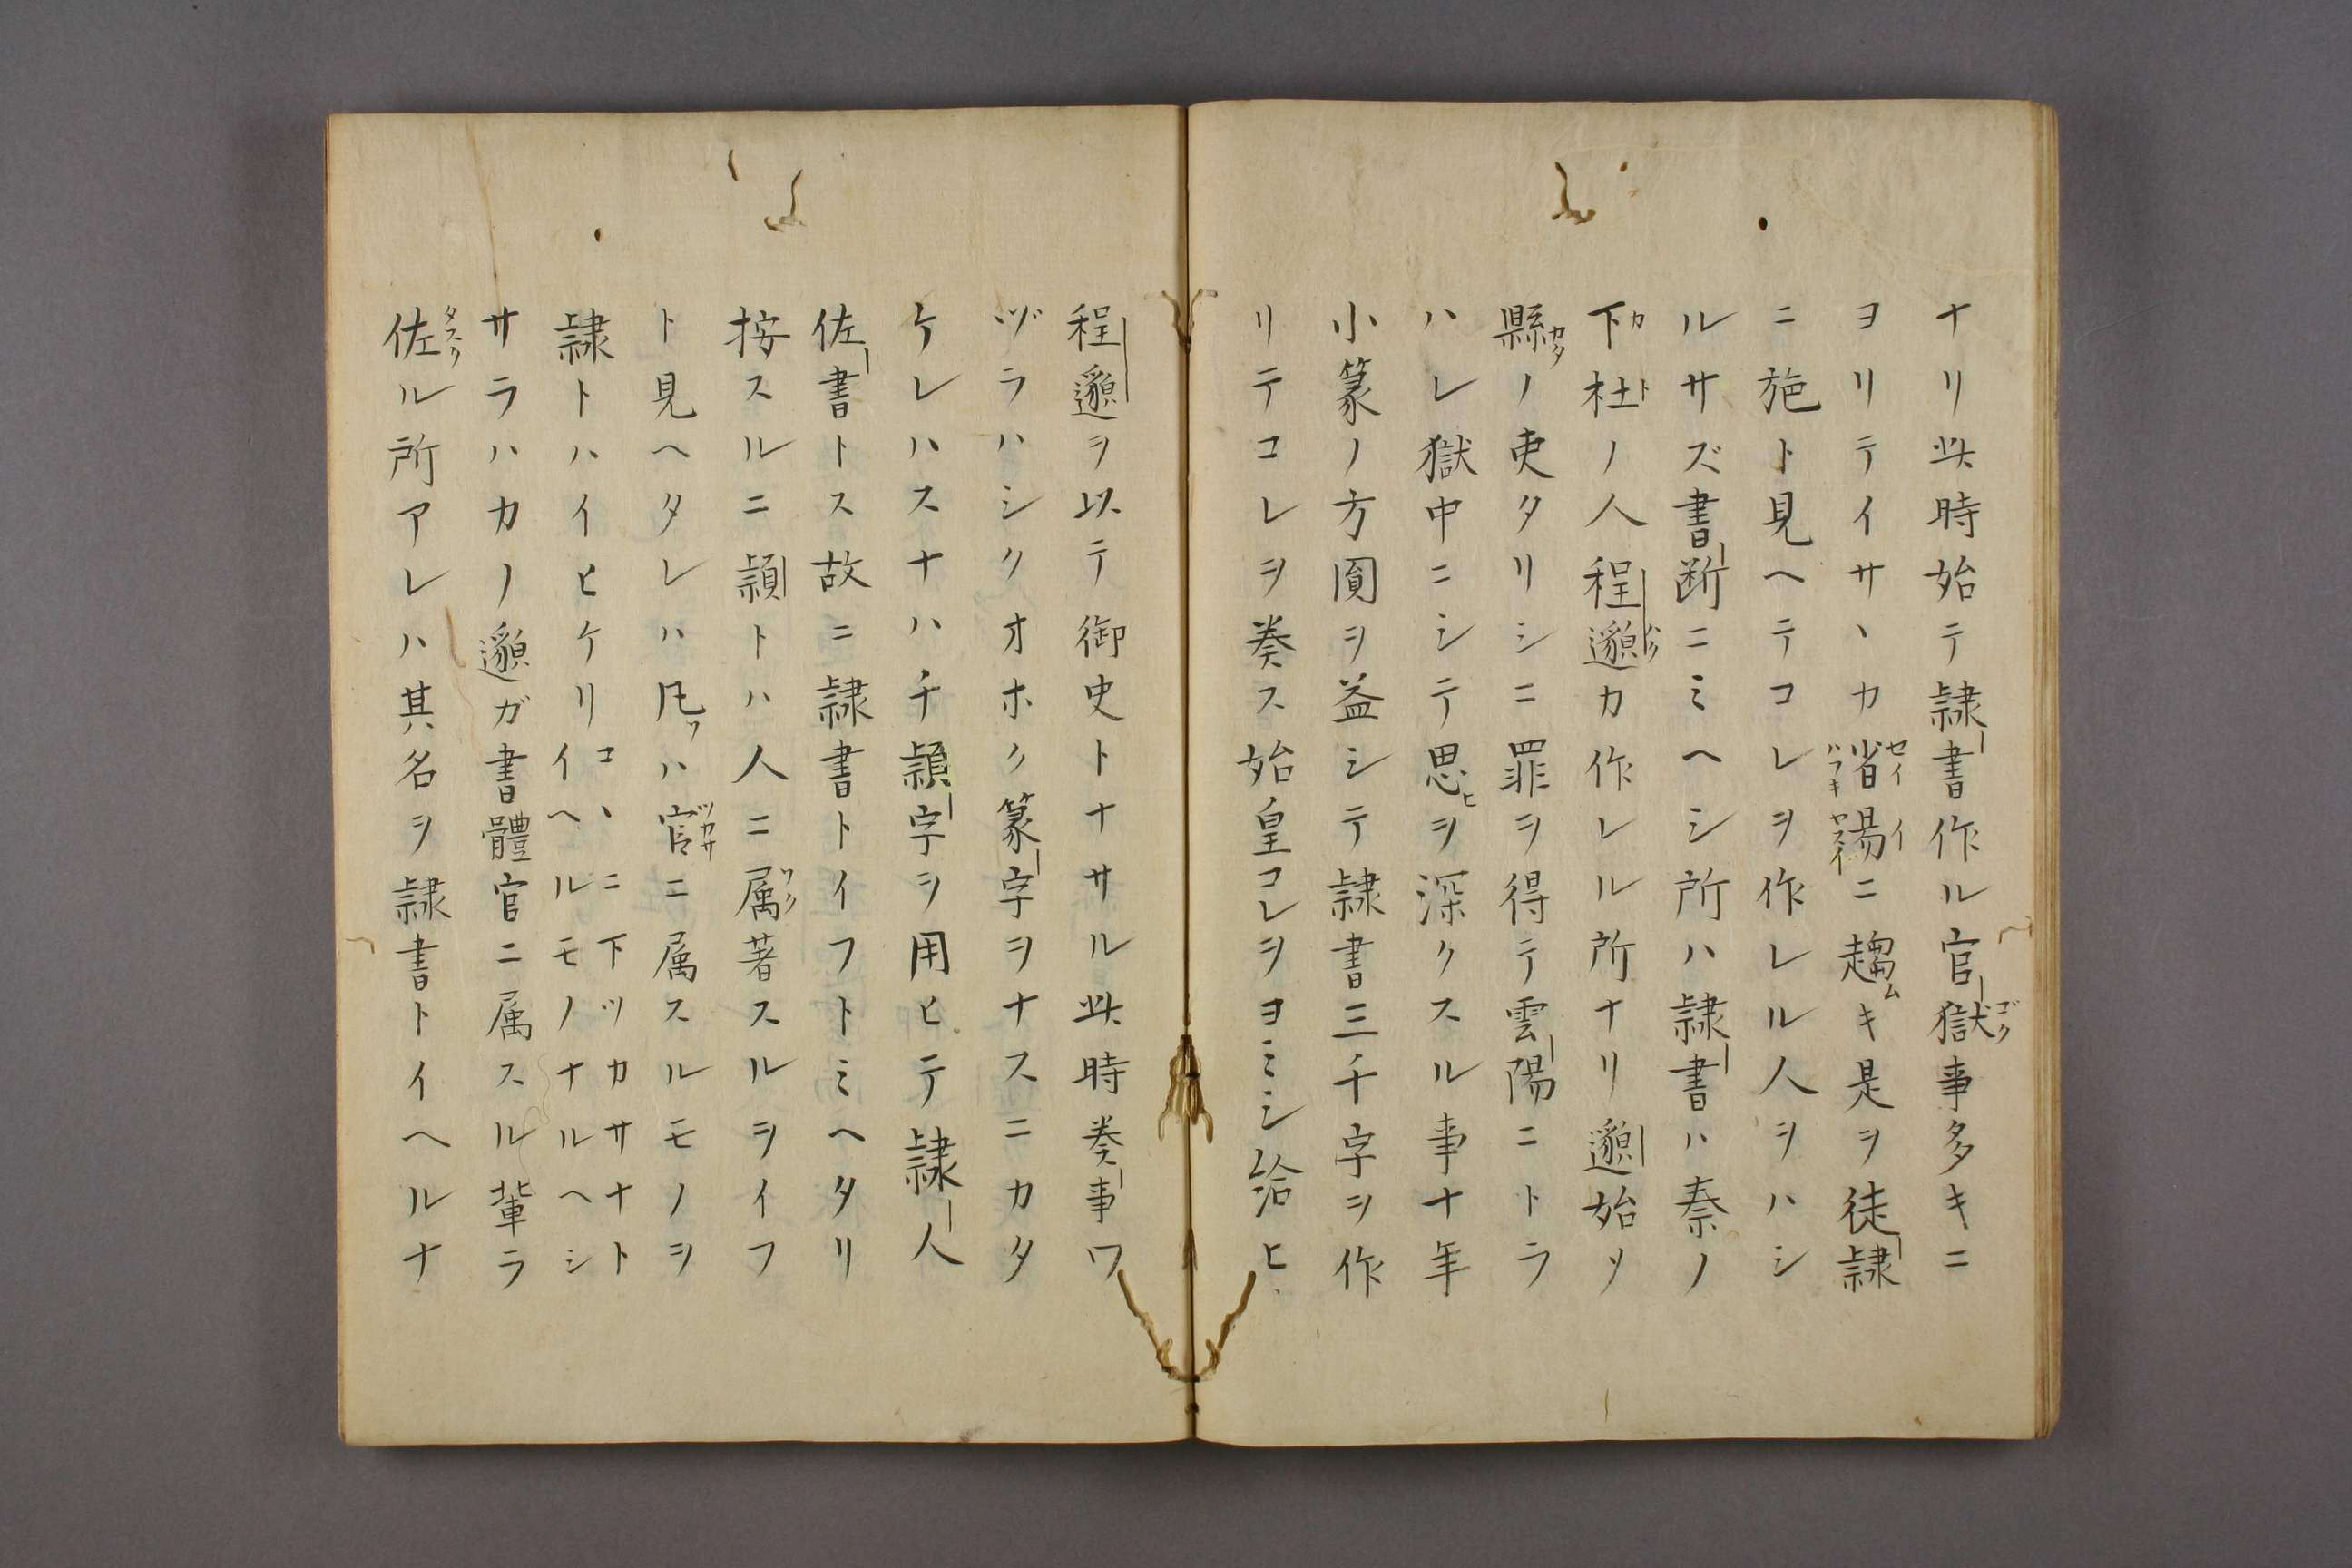 ナリ此時始テ隷書作ル官獄事多キニ
ヨリテイサヽカ省易ニ趨キ是ヲ徒隷
ニ施ト見ヘテコレヲ作レル人ヲハシ
ルサズ書断ニミヘシ所ハ隷書ハ秦ノ
下杜ノ人程邈カ作レル所ナリ邈始メ
縣ノ吏タリシニ罪ヲ得テ雲陽ニトラ
ハレ獄中ニシテ思ヲ深クスル事十年
小篆ノ方圓ヲ益シテ隷書三千字ヲ作
リテコレヲ奏ス始皇コレヲヨミシ給ヒ
程邈ヲ以テ御史トナサル此時奏事ワ
ヅラハシクオホク篆字ヲナスニカタ
ケレハスナハチ隷字ヲ用ヒテ隷人
佐書トス故ニ隷書トイフトミヘタリ
按スルニ隷トハ人ニ属著スルヲイフ
ト見ヘタレハ凡ハ官ニ属スルモノヲ
隷トハイヒケリ
コヽニ下ツカサナト
イヘルモノナルヘシ
サラハカノ邈ガ書體官ニ属スル輩ラ
佐ル所アレハ其名ヲ隷書トイヘルナ